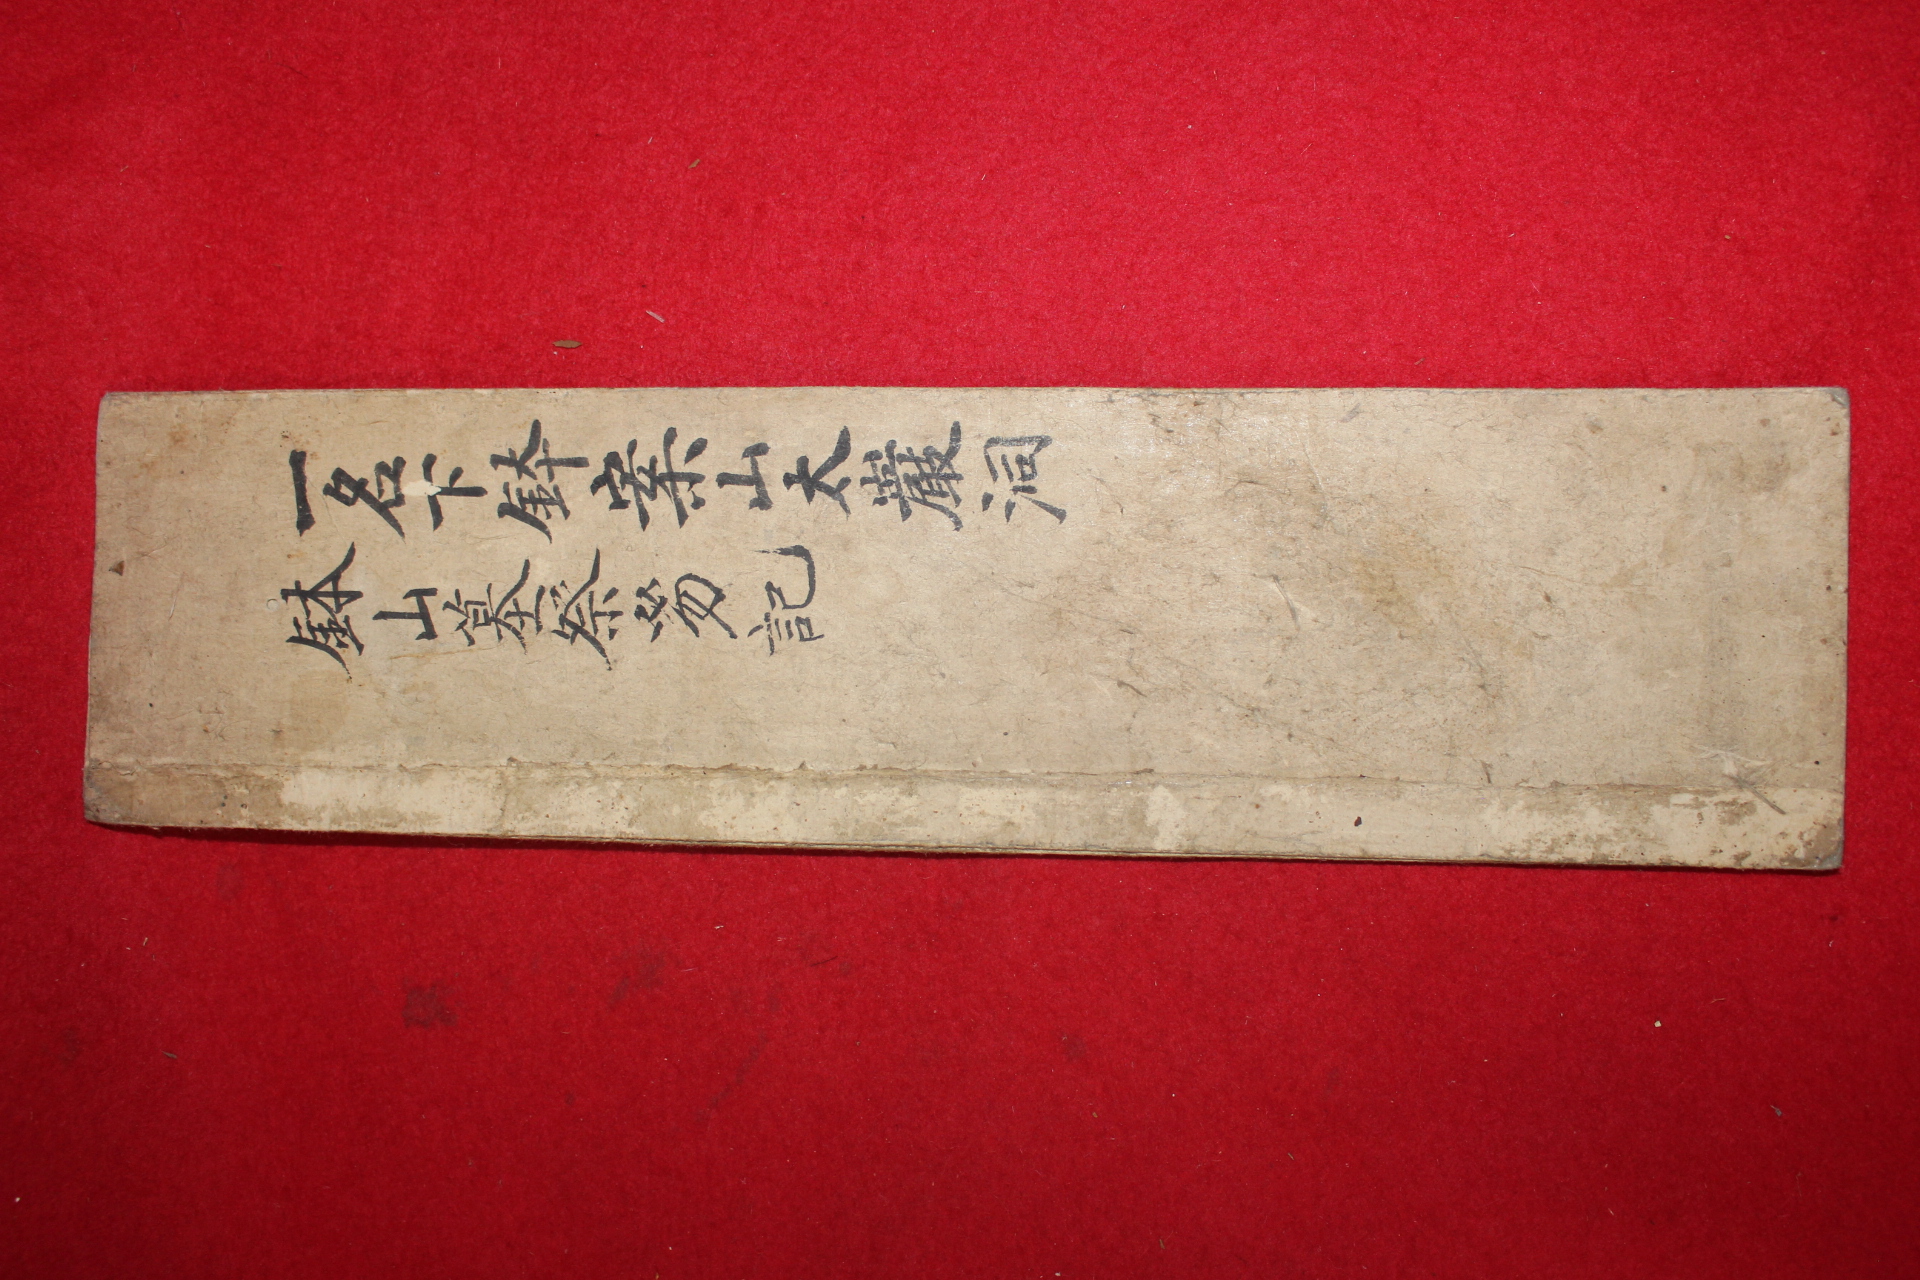 一名下鉢案山太巖洞
鉢山墓祭笏記